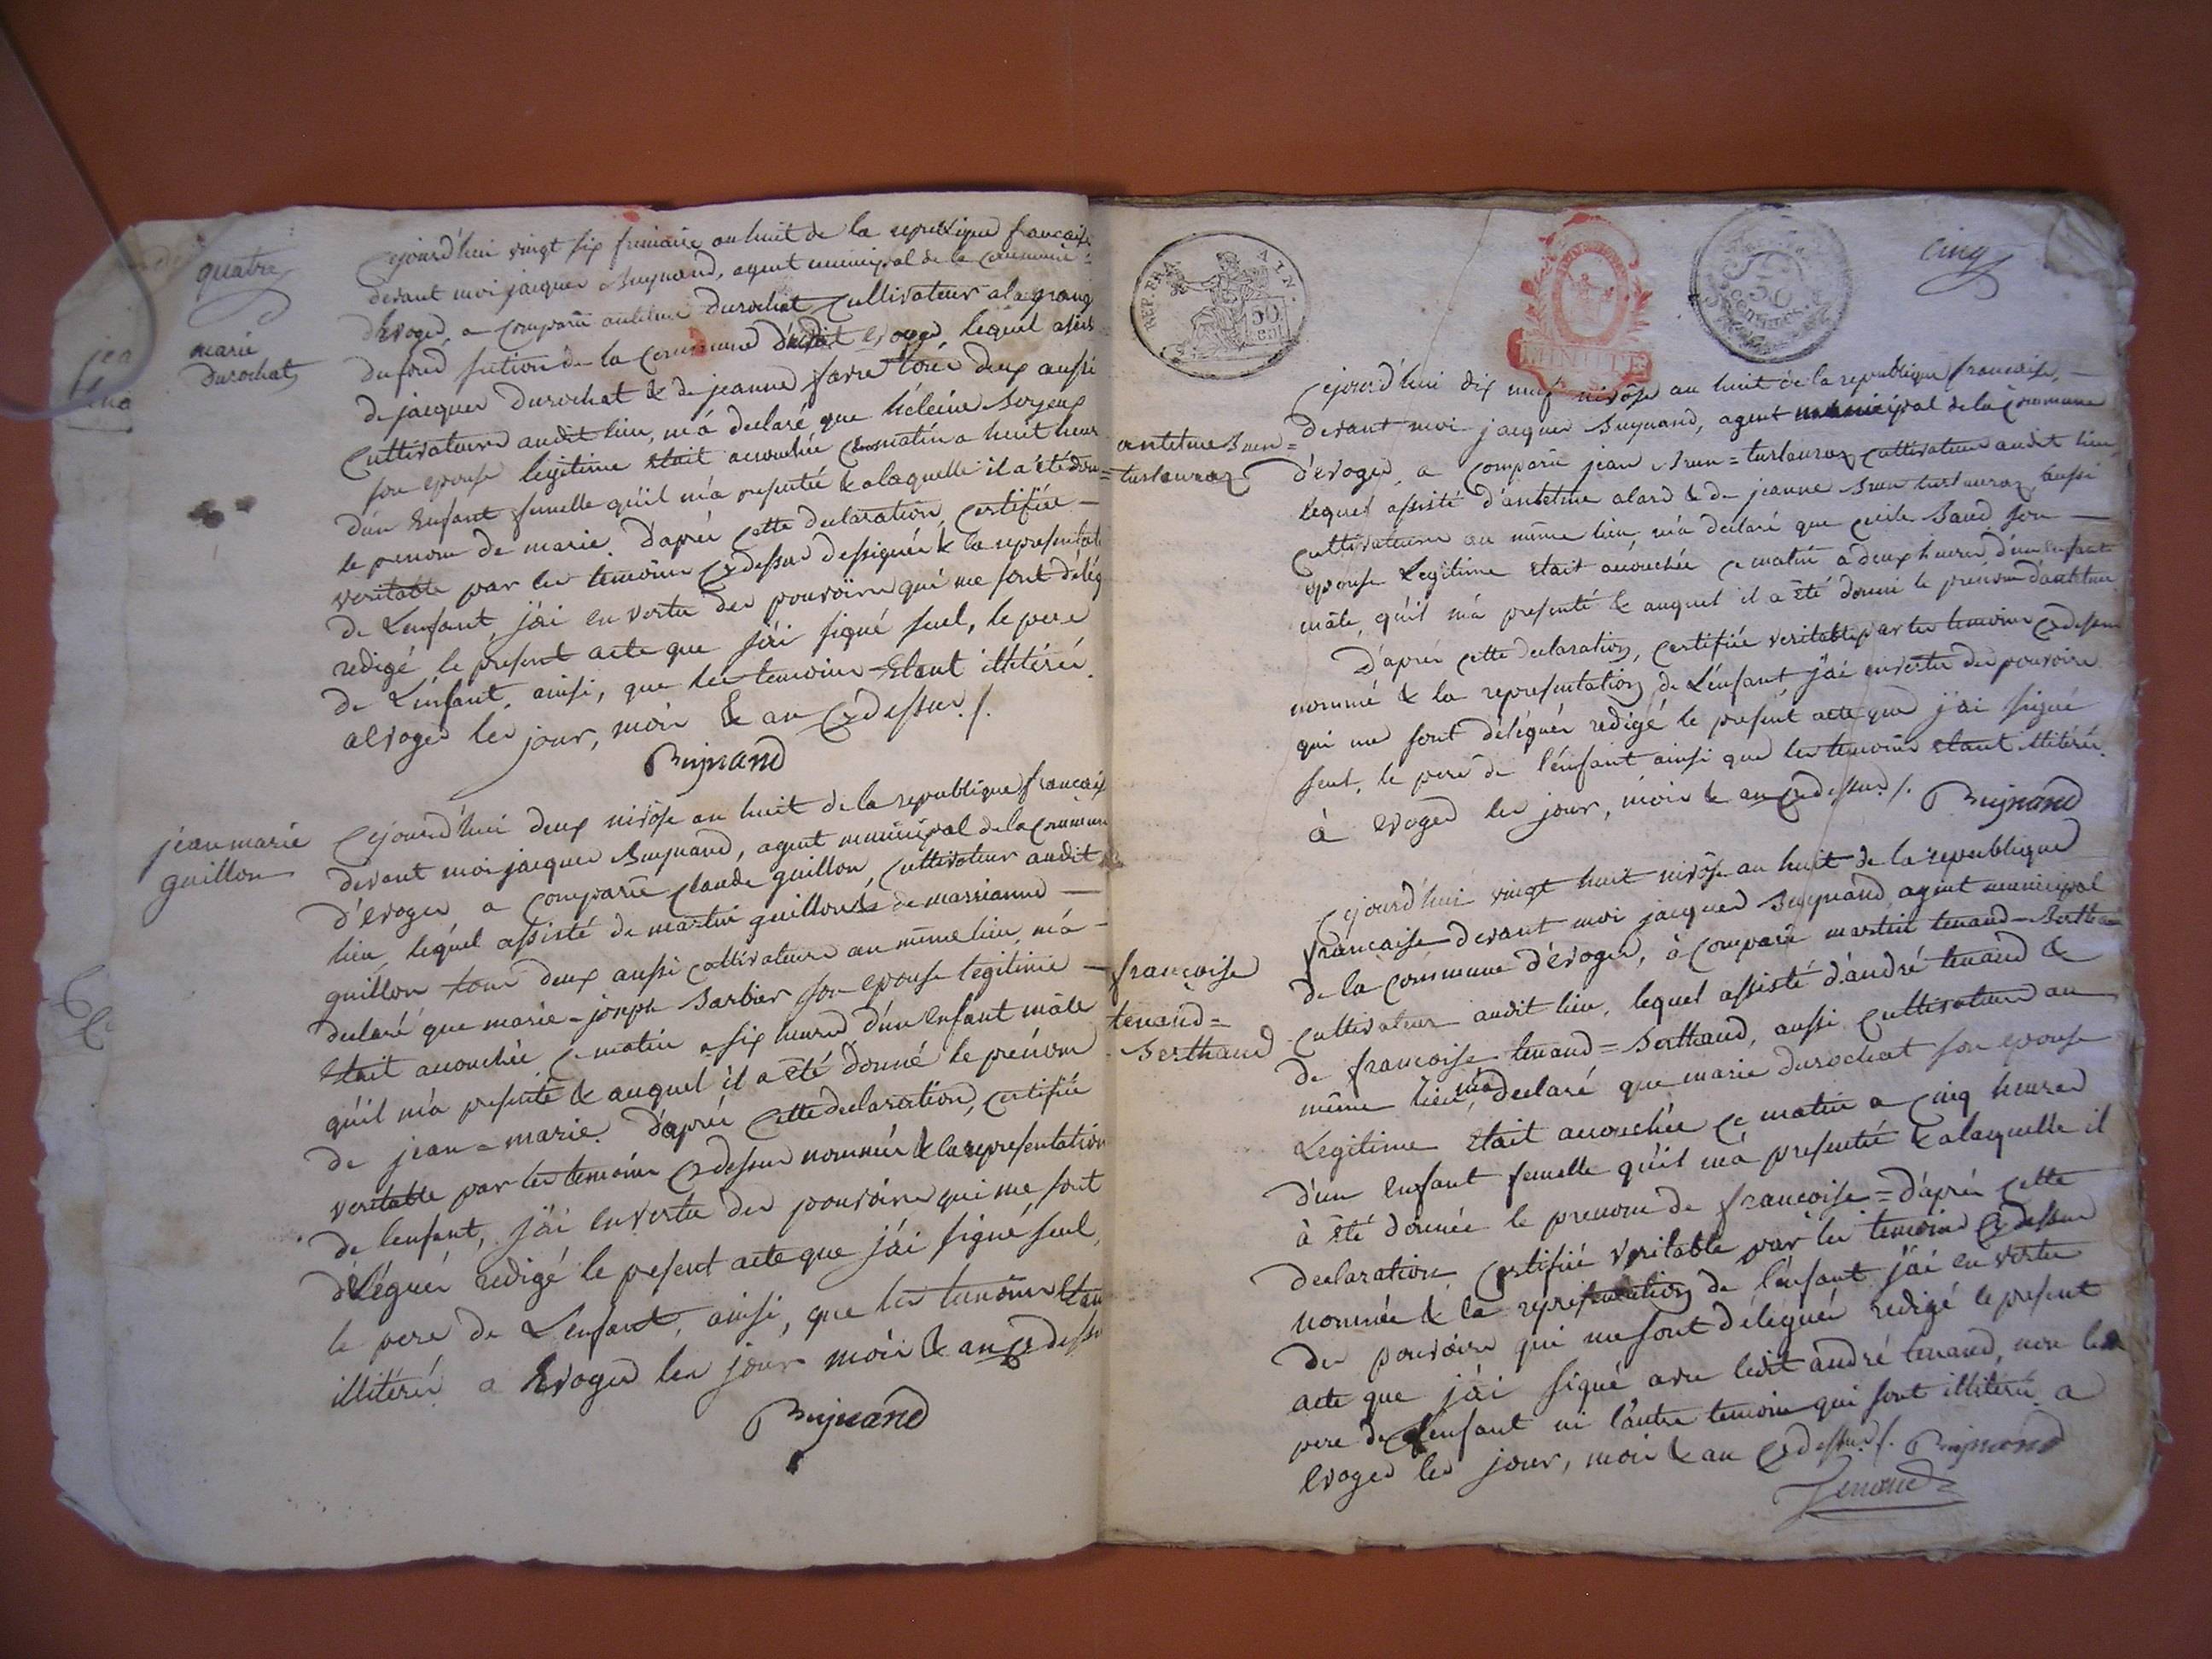 quatre
marie
durochat
Cejourd'hui vingt six frimaire an huit de la republique francaise
devant moi jacques Buynand, agent municipal de la commune
d'Evoges, a comparu antelme durochat cultivateur a la grang
du fond section de la commune d'Evoges lequel
de jacques durochat & de jeanne favre tous deux aussi
Cultivateurs audit lieu, m'a declaré que héleine
son epouse legitime était accouchée ce matin a huit heur
d'un Enfant femelle qu'il m'a presentée & a laquelle il a été don
le prenom de marie. D'après cette declaration certifiée
veritable par les temoins cydessus dessignés & la representati
de L'enfant, j'ai en vertu des pouvoirs qui me sont délég
redigé le present acte que j'ai signé seul, le pere
de L'enfant, ainsi, que les temoins étant illitérés
a Evoges les jour, mois & an cydessus ./.
Buynand
jean marie
guillon
Cejourd'hui deux nivôse an huit de la republique francaise
devant moi jacques Buynand, agent municipal de la commune
d'Evoges a comparu claude guillon, cultivateur audit
lieu, lequel assisté de martin guillon & de marianne
guillon tous deux aussi cultivateurs au même lieu m'a
declaré que marie-joseph Barbier son epouse legitime
était accouchée ce matin a six heures d'un Enfant mâle
qu'il m'a presenté & auquel il a été donné le prénom
de jean-marie. D'après cette declaration, certifiée
veritable par les temoins cydessus nommés & la representation
de lenfant, j'ai en vertu des pouvoirs qui me sont
délégués redigé le present acte que j'ai signé seul,
le pere de L'enfant, ainsi, que les temoins étan
illitérés a Evoges les jour mois & an cydessu
Buynand
REP. FRA.
50
cent
MINUTE
50
centimes
cinq
antelme Brun=
=turlauraz
Cejourd'hui dix neuf nivôse an huit de la republique francaise,
devant moi jacques Buynand, agent municipal de la commune
d'évoges, a comparu jean Brun=turlauraz cultivateur audit lieu
lequel assisté d'antelme alard & de jeanne Brun turlauraz, aussi
cultivateurs au même lieu m'a declaré que cecile Baud son
epouse Legitime était accouchée ce matin a deux heures d'un enfant
mâle, qu'il m'a presenté & auquel il a été donné le prénom d'antelme
D'après cette declaration, certifiée veritable par les temoins cydessus
nommé & la representation de L'enfant j'ai en vertu des pouvoirs
qui me sont délégués redigé le présent acte que j'ai signé
seul, le pere de l'enfant ainsi que les temoins étant illitérés.
à Evoges les jour, mois & an cydessus ./. Buynand
francoise
tenand=
Berthand
Cejourd'hui vingt huit nivôse an huit de la republique
francaise devant moi jacques Buynand, agent municipal
de la commune d'évoges, à comparu martin tenand=Berthand
cultivateur audit lieu, lequel assisté d'andré tenand &
de francoise tenand=Berthand, aussi cultivateurs au
même lieu, m'a declaré que marie durochat son epouse
Legitime était accouchée ce matin a cinq heures
d'un enfant femelle qu'il m'a presentée & a laquelle il
à été donnée le prenom de francoise = d'après cette
declaration certifiée veritable par les temoins cydessus
nommés & la representation de l'enfant j'ai en vertu
des pouvoirs qui me sont délégués redigé le present
acte que j'ai signé avec ledit andré tenand, non le
pere de L'enfant ni l'autre temoin qui sont illitérés a
Evoges les jour, mois & an cydessus ./. Buynand
Tenand